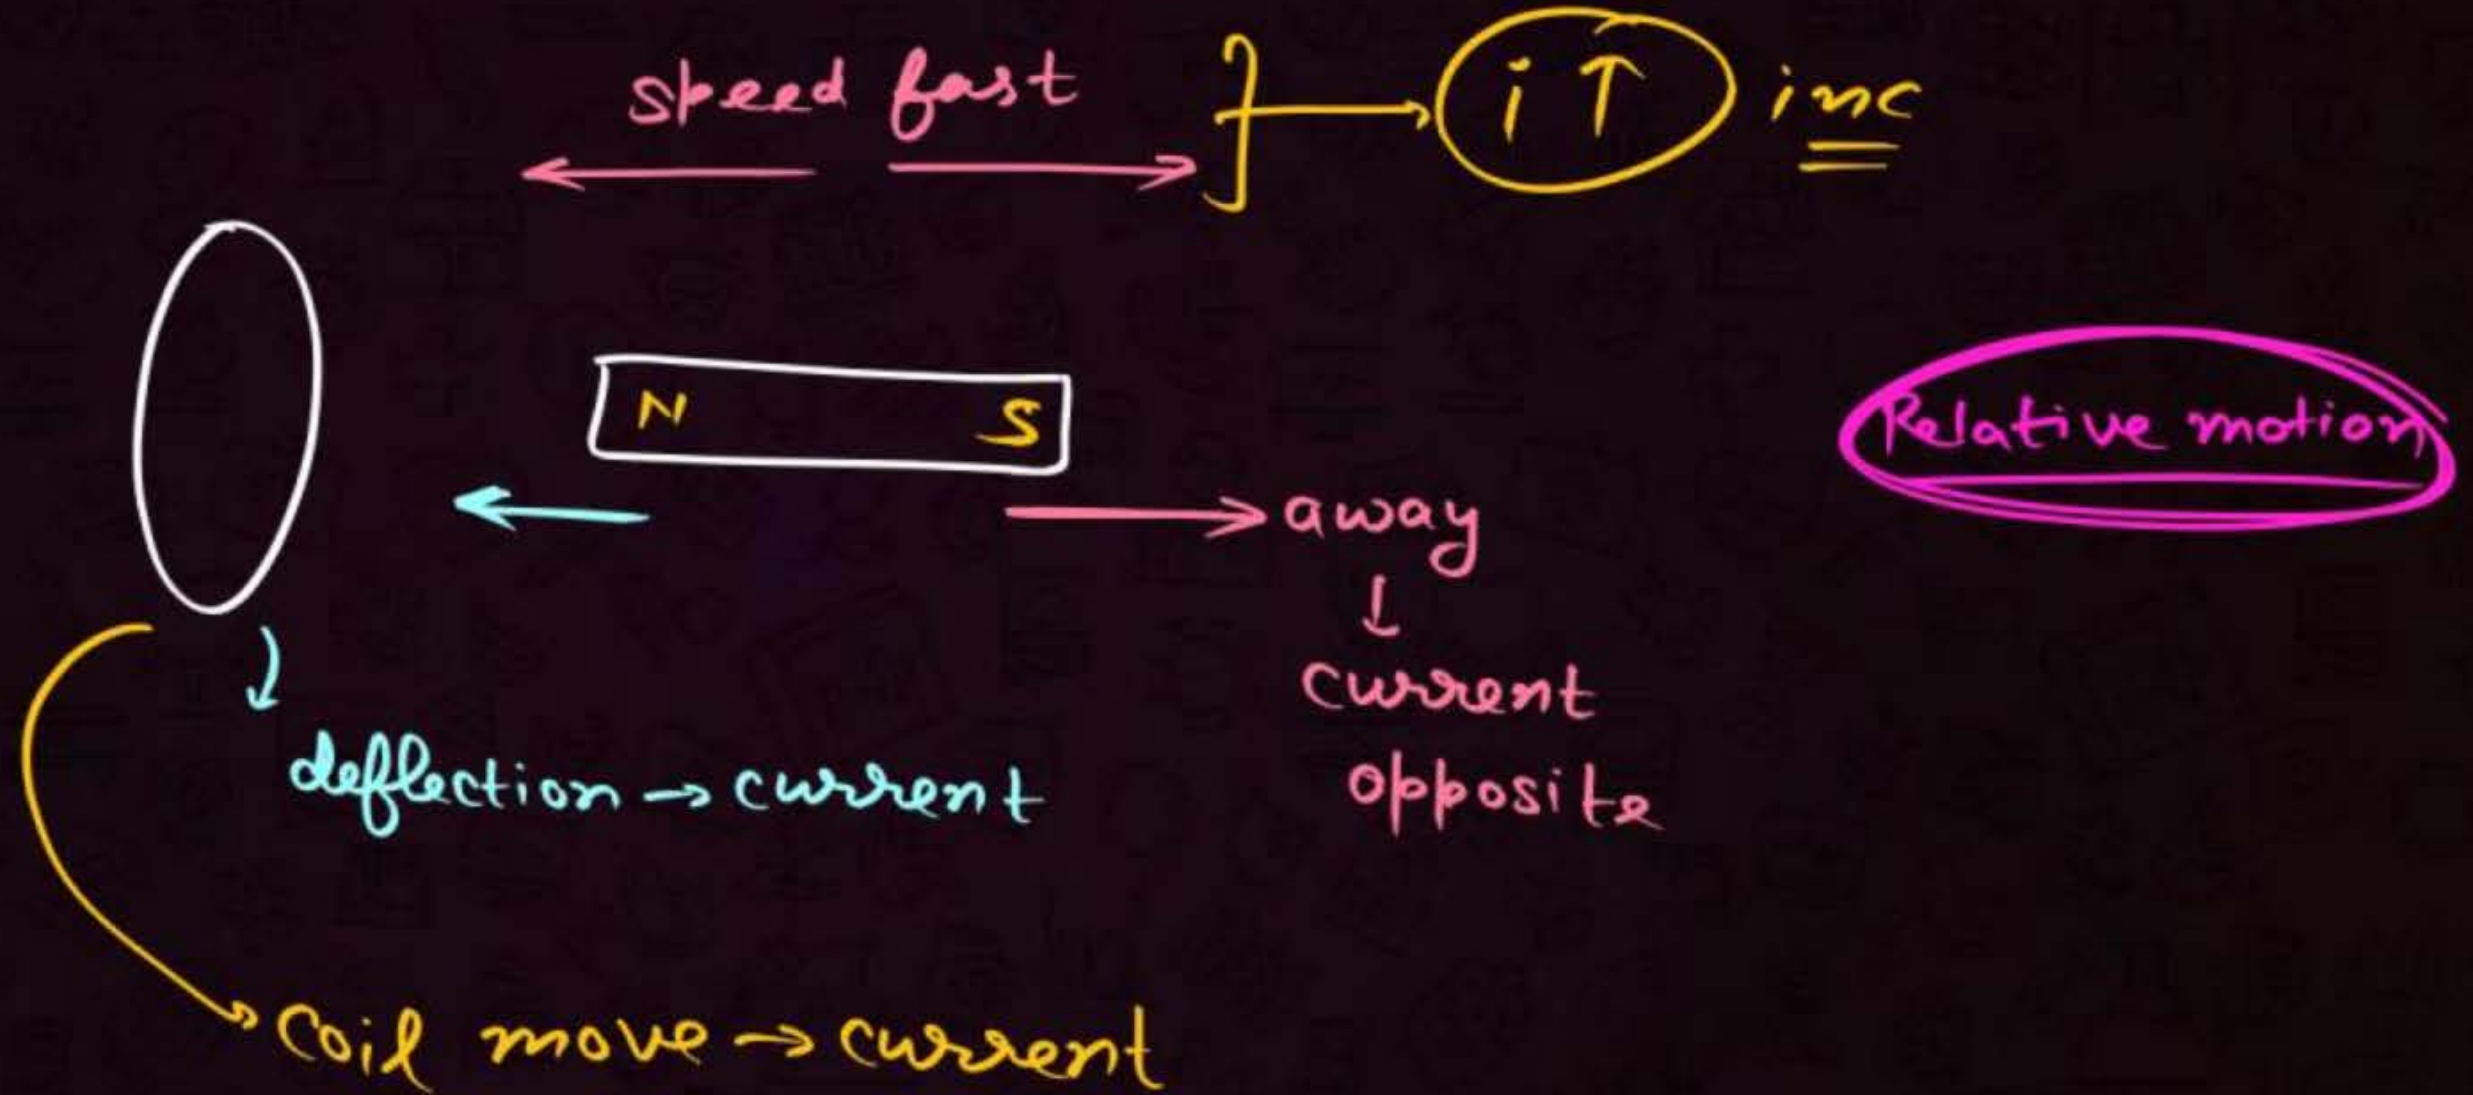 speed fast
i ↑ inc
N S
Relative motion
away
↓
current
opposite
deflection → current
coil move → current